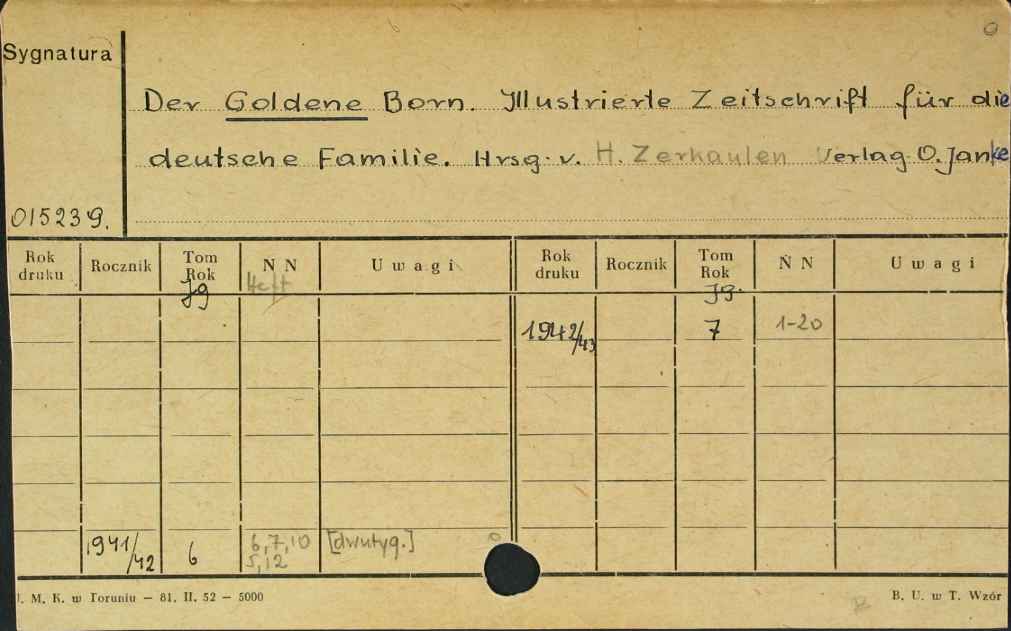 Sygnatura
Der Goldene Born. Illustrierte Zeitschrift für die
deutsche Familie. Hrsg. v. H. Zerkaulen Verlag O. Janke
015239.
Rok druku Rocznik Tom Rok N N U w a g i Rok druku Rocznik Tom Rok N N U w a g i
Jg Heft Jg.
1942/43 7 1-20
1941/42 6 6,7,10 [dwutyg.]
5,12
U. M. K. w Toruniu — 81. II. 52 — 5000 B. U. w T. Wzór